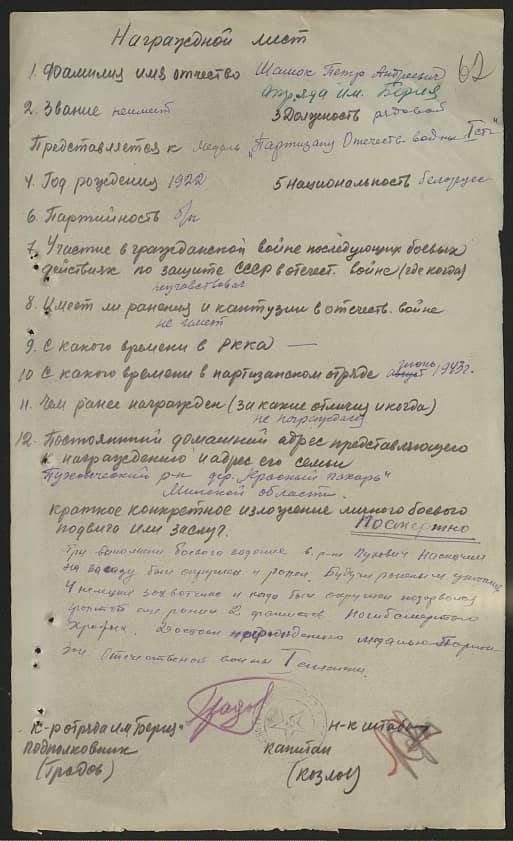 Наградной лист
62
1. Фамилия имя отчество Шашок Петр Андреевич
отряда им. Берия
2. Звание неимеет 3 Должность рядовой
Представляется к медаль "Партизану Отечеств. войны I ст."
4. Год рождения 1922 5 Национальность белорусс
6. Партийность б/п
7. Участие в гражданской войне последующих боевых
действиях по защите СССР в отечест. войне (где когда)
неучавствовал
8. Имеет ли ранения и кантузии в отечеств. войне
не имеет
9. С какого времени в РККА —
10 С какого времени в партизанском отряде июнь 1943 г.
11. Чем ранее награжден (за какие отличия и когда)
не награждался
12. Постоянный домашний адрес представляющего
к награждению и адрес его семьи
Пуховический р-н дер. "Красный пахарь"
Минской области.
Краткое конкретное изложение личного боевого
подвига или заслуг. Посмертно
При выполнении боевого задания в р-не Пухович наскочил
на засаду был окружен и ранен. Будучи раненым
4 немцев и когда был окружен подорвался
гранатой и ранил 2 фашистов. Погиб смертью
храбрых. Достоин награждения медалью Партиз
ан Отечественной войны I степени.
к-р отряда им Берия Н-к штаба
подполковник капитан
(Градов) (Козлов)